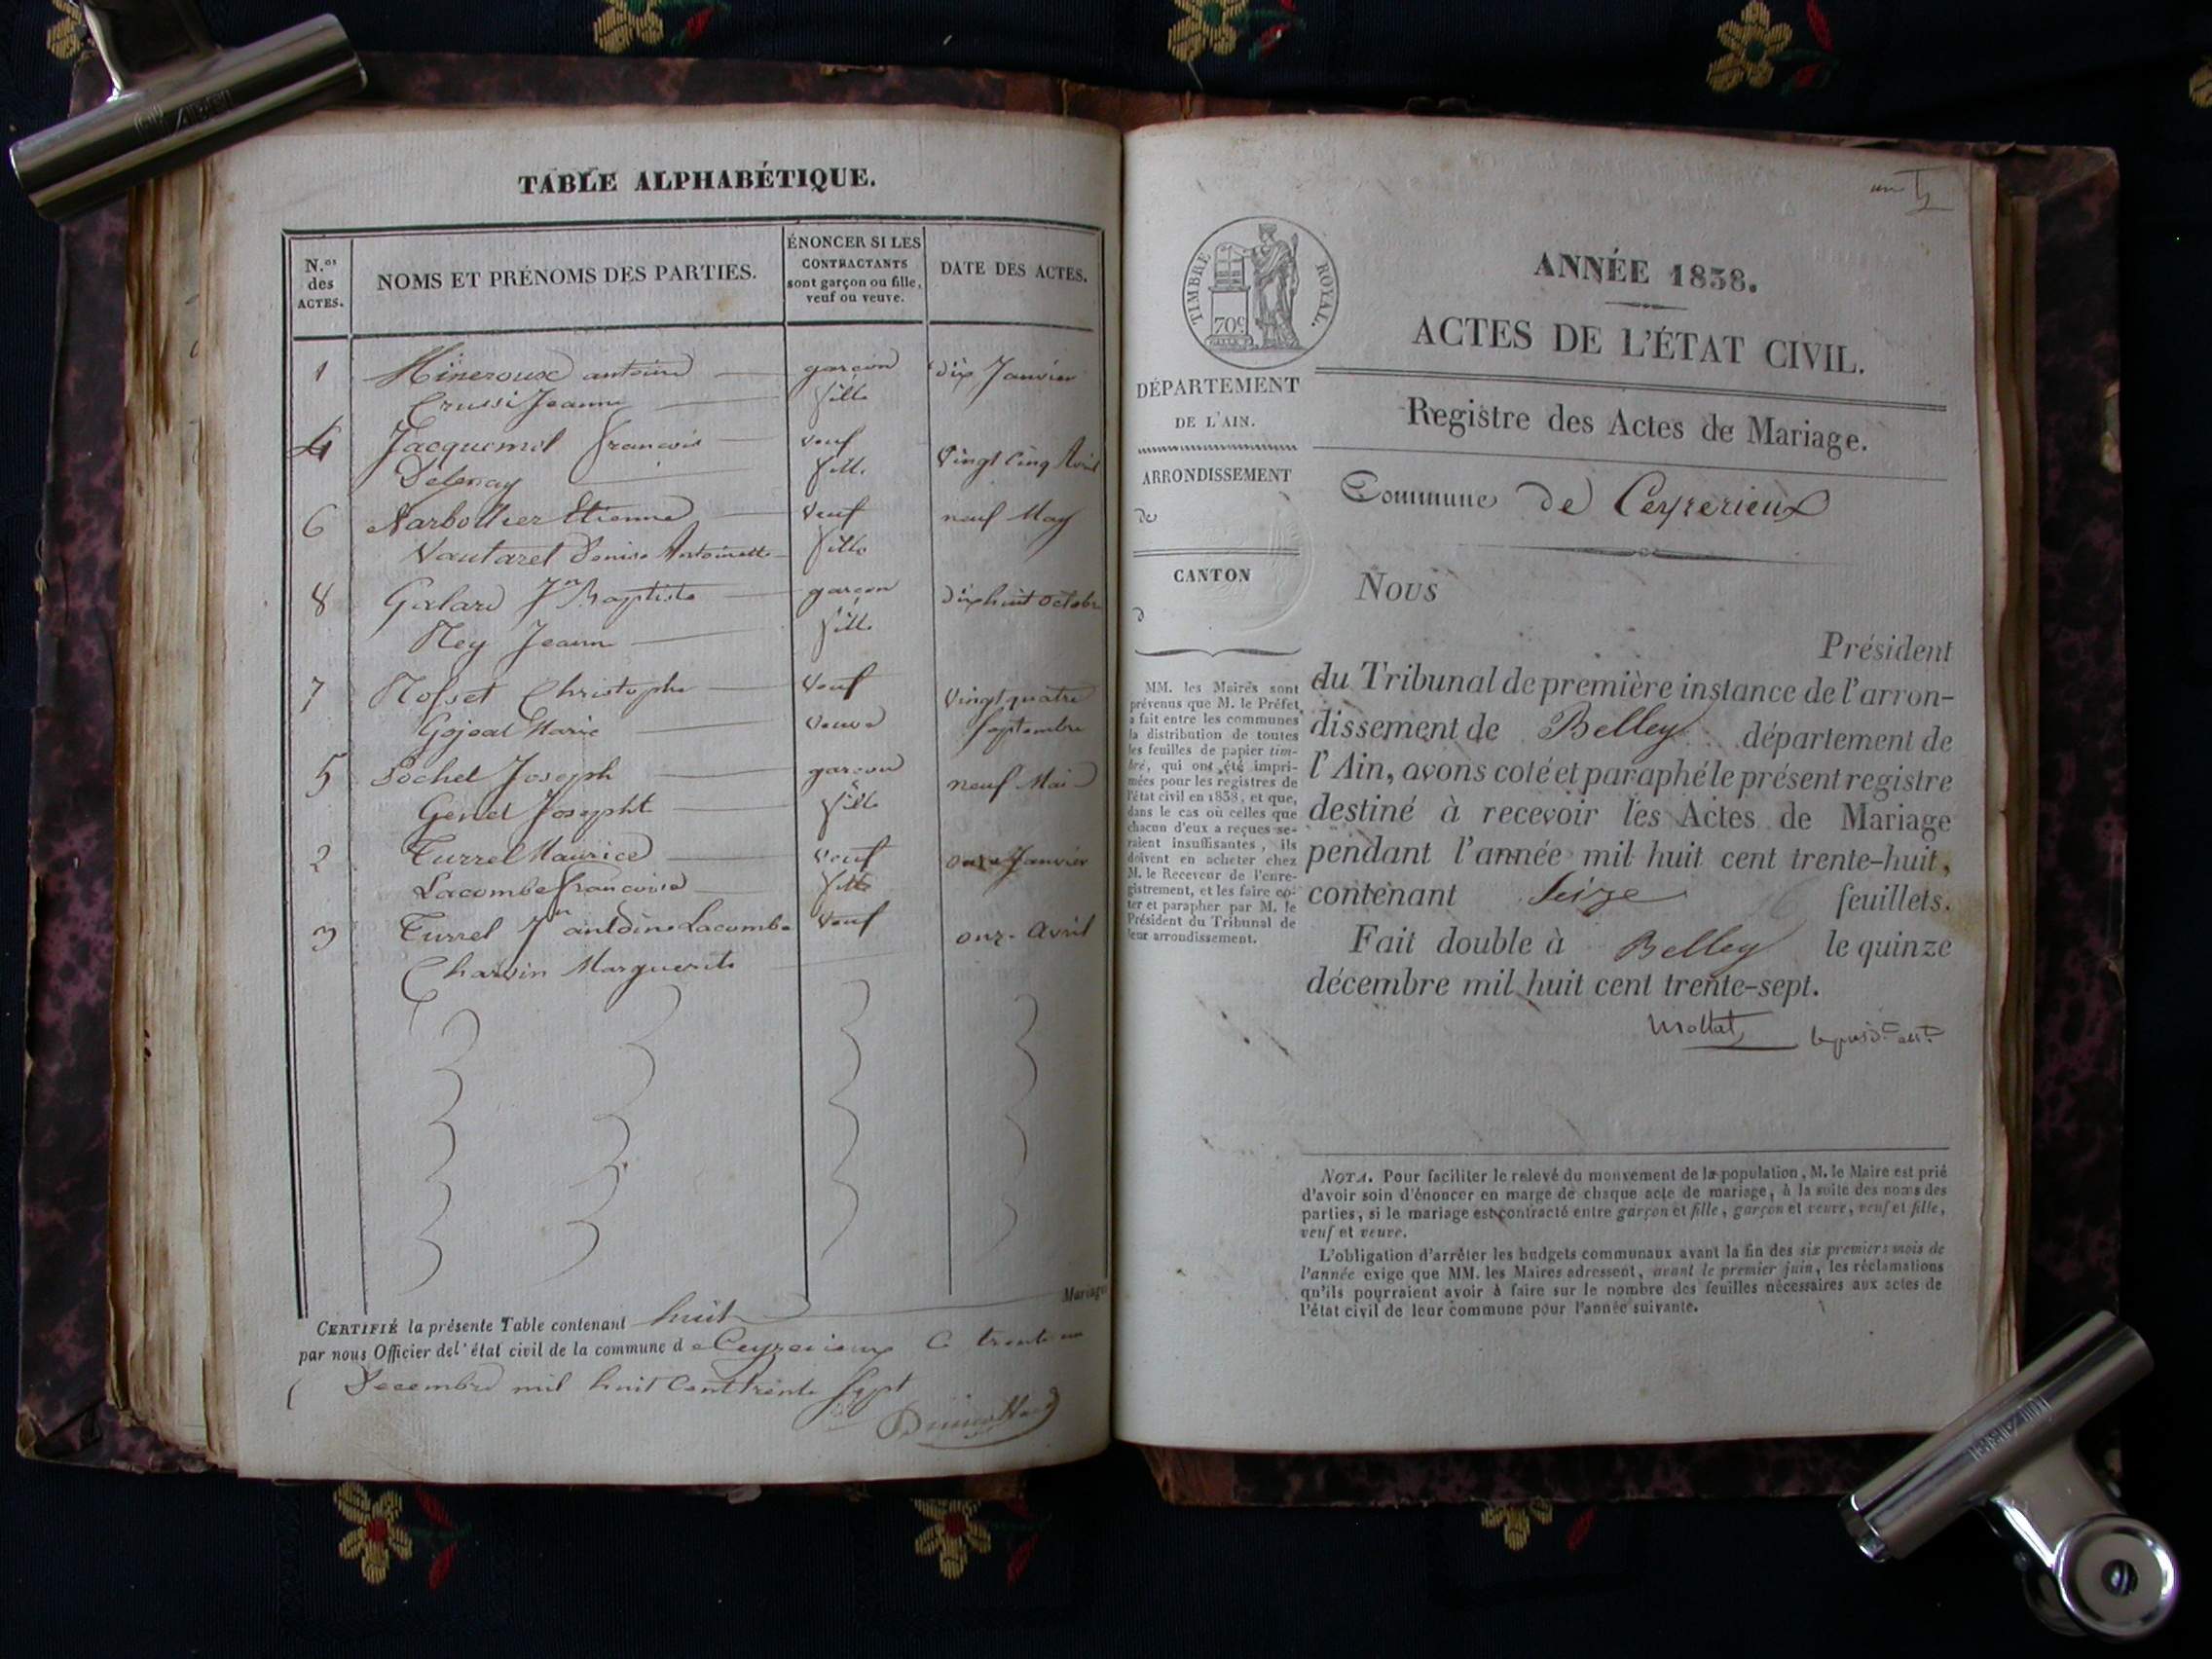 TABLE ALPHABÉTIQUE.
N.os des ACTES.
NOMS ET PRÉNOMS DES PARTIES.
ÉNONCER SI LES
CONTRACTANTS
sont garçon ou fille,
veuf ou veuve.
DATE DES ACTES.
1 Mineroux antoine garcon dix Janvier
Crussi Jeanne fille
4 Jacquemet francois veuf vingt Cinq Avril
Delenay fille
6 Narbollier Etienne Veuf neuf May
Vautaret Denise Antoinette fille
8 Galard Jn Baptiste garcon dixhuit octobre
Rey Jeanne fille
7 Rosset Christophe Veuf vingt quatre
Gojoat Marie veuve septembre
5 Pochet Joseph garcon neuf Mai
Genet Josepht fille
2 Turrel Maurice veuf onze Janvier
Lacombe francoise fille
3 Turrel Jn antoine Lacombe Veuf onze Avril
Charvin Marguerite
Mariages
CERTIFIÉ la présente Table contenant huit
par nous Officier de l'état civil de la commune de Ceyzerieux Ce trente un
Decembre mil huit Cent trente sept
un
TIMBRE ROYAL.
70c
ANNÉE 1838.
ACTES DE L'ÉTAT CIVIL.
DÉPARTEMENT
DE L'AIN.
ARRONDISSEMENT
de
CANTON
d
Registre des Actes de Mariage.
Commune de Ceyzerieux
MM. les Maires sont
prévenus que M. le Préfet
a fait entre les communes
la distribution de toutes
les feuilles de papier tim-
bré, qui ont été impri-
mées pour les registres de
l'état civil en 1838, et que,
dans le cas où celles que
chacun d'eux a reçues se-
raient insuffisantes, ils
doivent en acheter chez
M. le Receveur de l'enre-
gistrement, et les faire co-
ter et parapher par M. le
Président du Tribunal de
leur arrondissement.
Nous
Président
du Tribunal de première instance de l'arron-
dissement de Belley département de
l'Ain, avons coté et paraphé le présent registre
destiné à recevoir les Actes de Mariage
pendant l'année mil huit cent trente-huit,
contenant Seize 16 feuillets.
Fait double à Belley le quinze
décembre mil huit cent trente-sept.
Mollat
NOTA. Pour faciliter le relevé du mouvement de la population, M. le Maire est prié
d'avoir soin d'énoncer en marge de chaque acte de mariage, à la suite des noms des
parties, si le mariage est contracté entre garçon et fille, garçon et veuve, veuf et fille,
veuf et veuve.
L'obligation d'arrêter les budgets communaux avant la fin des six premiers mois de
l'année exige que MM. les Maires adressent, avant le premier juin, les réclamations
qu'ils pourraient avoir à faire sur le nombre des feuilles nécessaires aux actes de
l'état civil de leur commune pour l'année suivante.